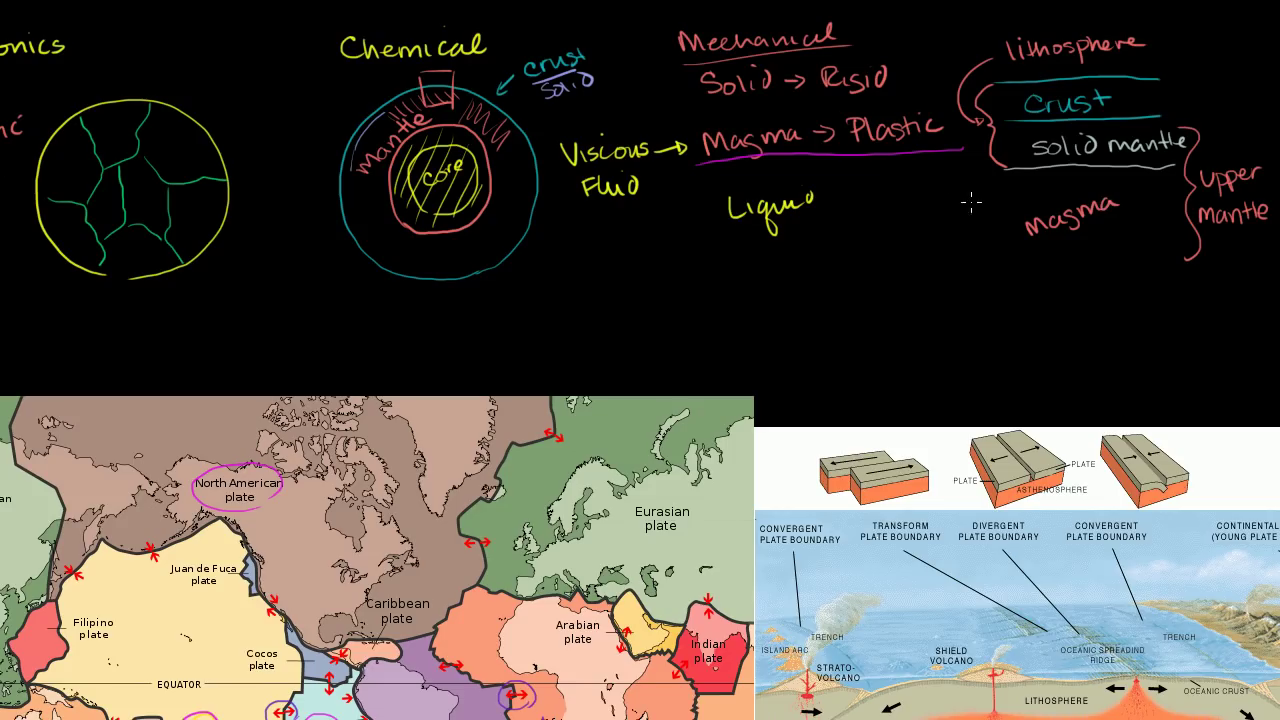 onics
Chemical
crust
solid
Mantle
core
Viscous
Fluid
Mechanical
Solid → Rigid
Magma → Plastic
Liquid
lithosphere
Crust
solid mantle
magma
upper
mantle
North American
plate
Juan de Fuca
plate
Filipino
plate
Cocos
plate
Caribbean
plate
EQUATOR
Eurasian
plate
Arabian
plate
Indian
plate
an
PLATE
PLATE
ASTHENOSPHERE
CONVERGENT
PLATE BOUNDARY
TRANSFORM
PLATE BOUNDARY
DIVERGENT
PLATE BOUNDARY
CONVERGENT
PLATE BOUNDARY
CONTINENTAL
(YOUNG PLATE
TRENCH
ISLAND ARC
STRATO-
VOLCANO
SHIELD
VOLCANO
OCEANIC SPREADING
RIDGE
TRENCH
LITHOSPHERE
OCEANIC CRUST